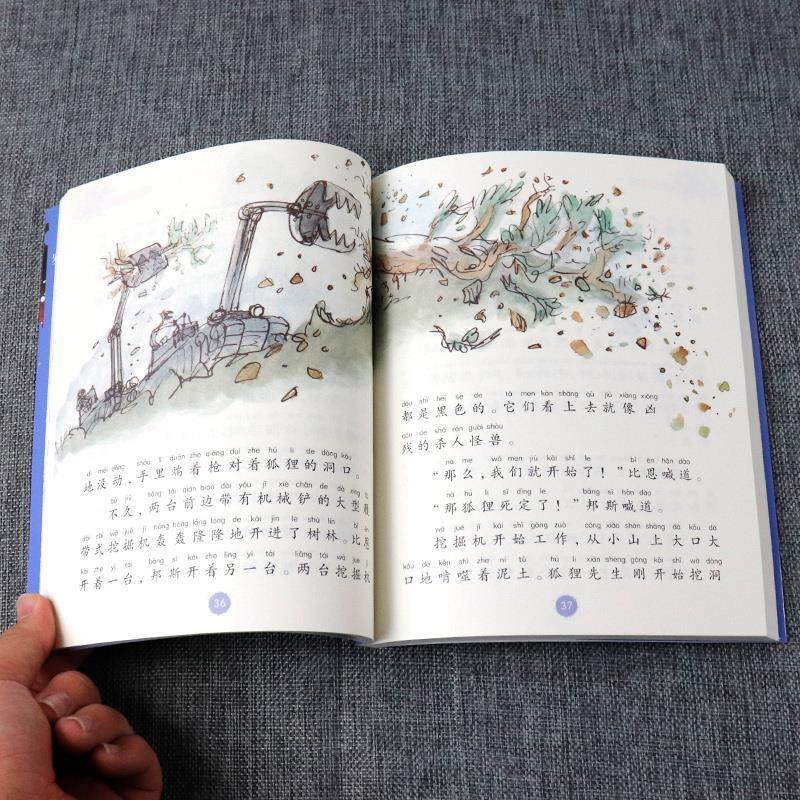 dì méi dòng shǒu lǐ duān zhe qiāng duì zhe hú li de dòng kǒu
地没动，手里端着枪对着狐狸的洞口。
bù jiǔ liǎng tái qián biān dài yǒu jī xiè chǎn de dà xíng lǚ
不久，两台前边带有机械铲的大型履
dài shì wā jué jī hōng hōng lōng lōng de kāi jìn le shù lín bǐ ēn
带式挖掘机轰轰隆隆地开进了树林。比恩
kāi zhe yì tái bāng sī kāi zhe lìng yì tái liǎng tái wā jué jī
开着一台，邦斯开着另一台。两台挖掘机
36
dōu shì hēi sè de tā men kàn shàng qù jiù xiàng xiōng
都是黑色的。它们看上去就像凶
cán de shā rén guài shòu
残的杀人怪兽。
nà me wǒ men jiù kāi shǐ le bǐ ēn hǎn dào
“那么，我们就开始了！”比恩喊道。
nà hú li sǐ dìng le bāng sī hǎn dào
“那狐狸死定了！”邦斯喊道。
wā jué jī kāi shǐ gōng zuò cóng xiǎo shān shàng dà kǒu dà
挖掘机开始工作，从小山上大口大
kǒu de kěn shì zhe ní tǔ hú li xiān sheng gāng kāi shǐ wā dòng
口地啃噬着泥土。狐狸先生刚开始挖洞
37